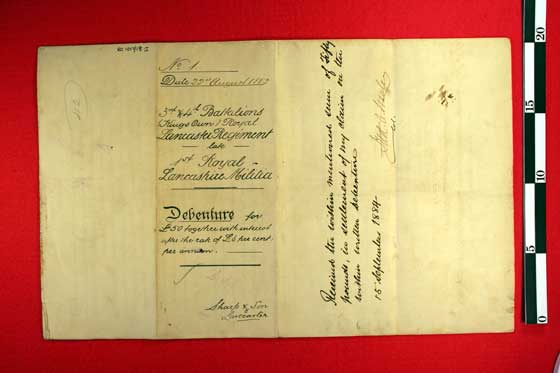 No 1
Date 22nd August 1883
3rd & 4th Battalions
(Kings Own) Royal
Lancaster Regiment
late
1st Royal
Lancashire Militia
Debenture for
£50 together with interest
after the rate of £5 per cent
per annum.
Sharp & Son
Lancaster
Received the within mentioned sum of Fifty
pounds, in settlement of my claim on the
within written debenture
15 September 1884
20
15
10
5
0